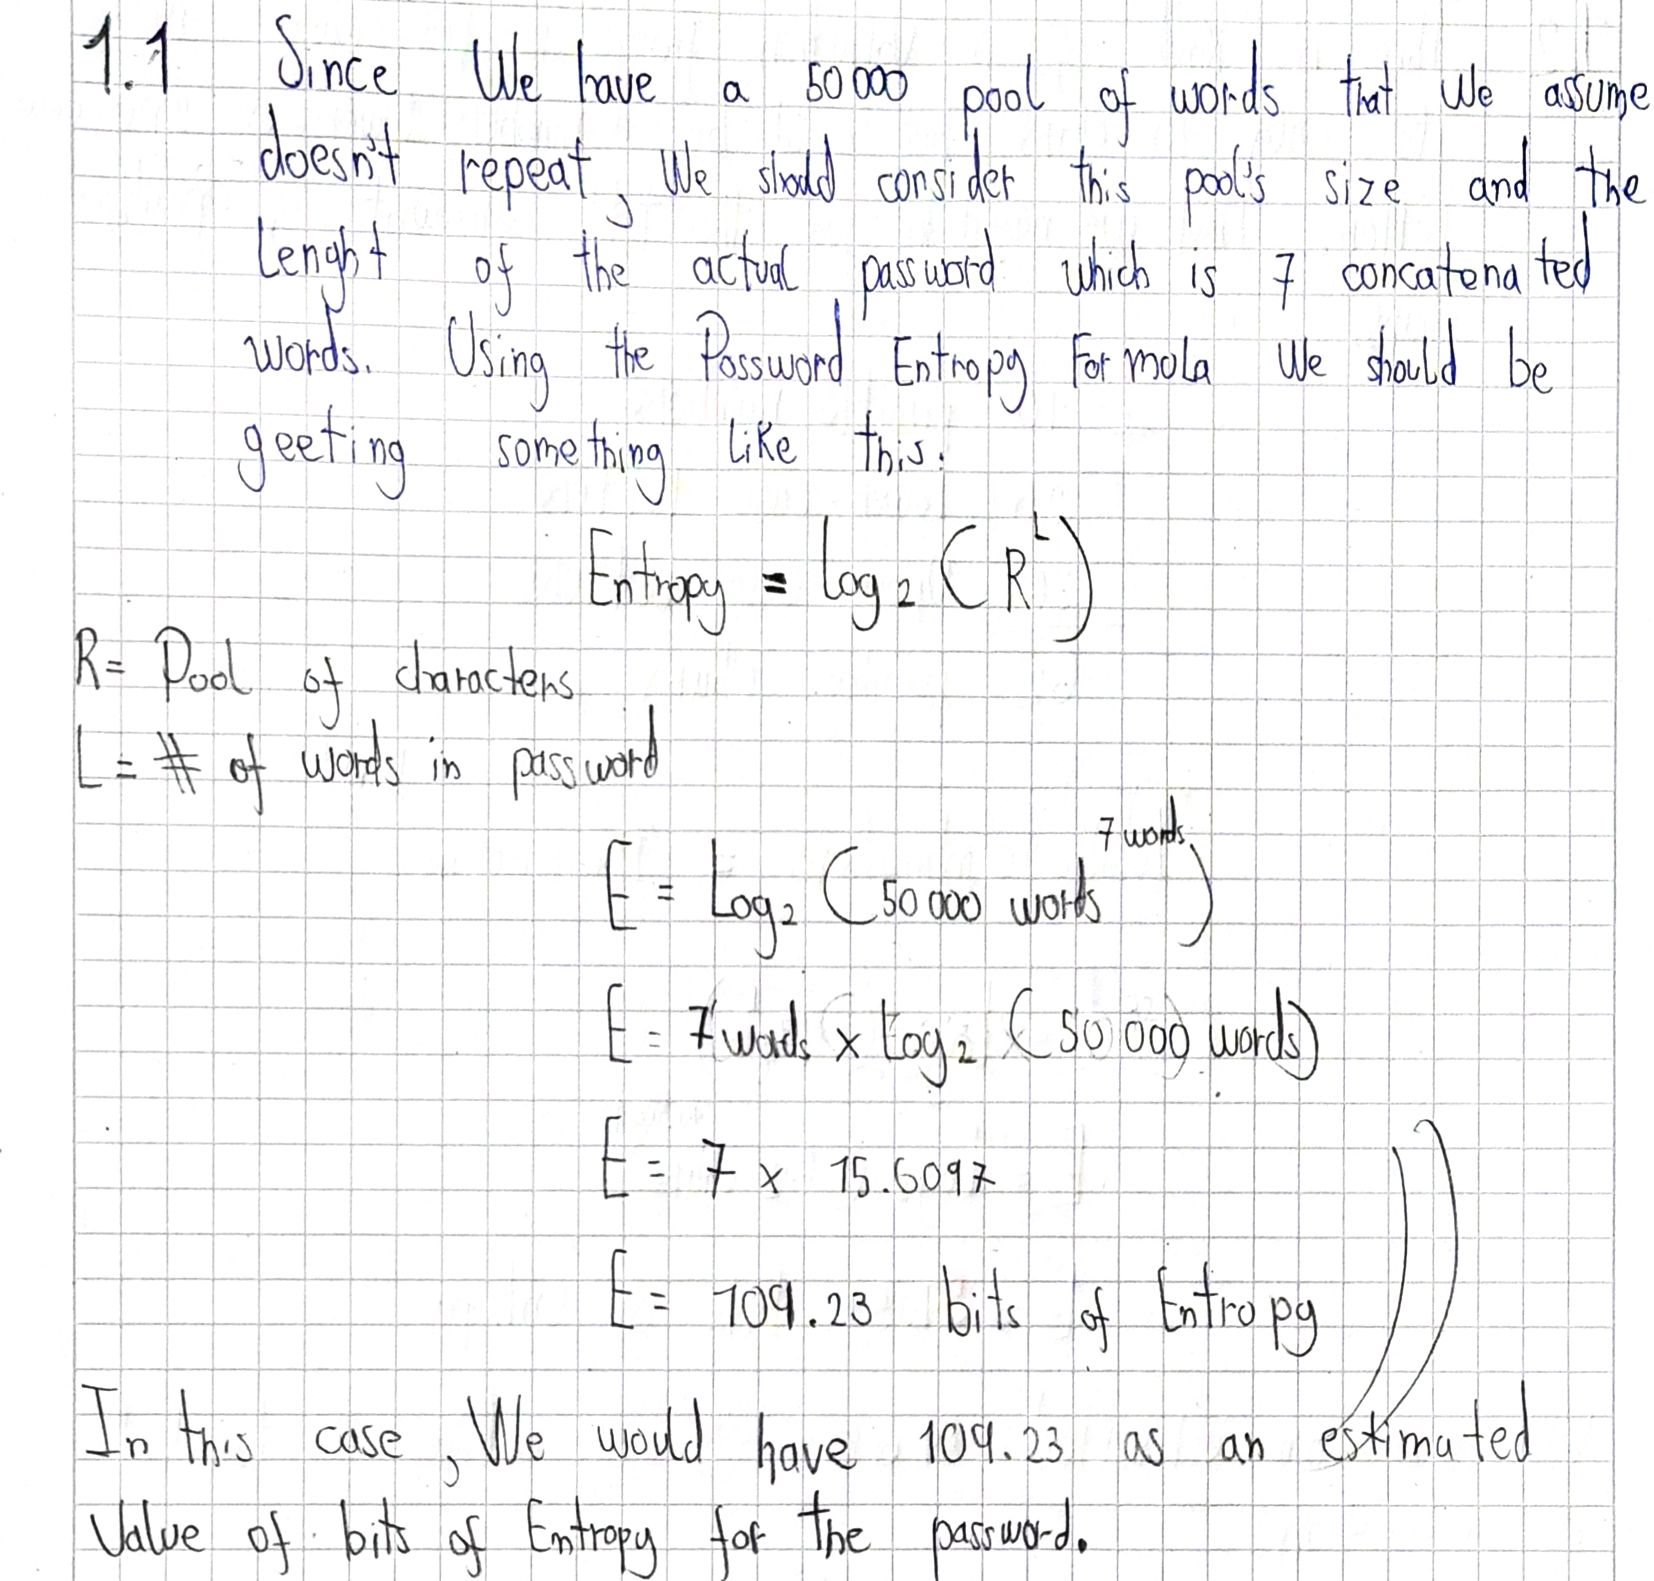 1.1 Since We have a 50000 pool of words that We assume
doesn't repeat, We should consider this pool's size and the
Lenght of the actual password which is 7 concatenated
words. Using the Password Entropy Formola We should be
geeting something like this:
Entropy = log₂ (R^L)
R= Pool of characters
L= # of words in password
E = Log₂ (50000 words^7 words)
E = 7 words x Log₂ (50 000 words)
E = 7 x 15.6097
E = 109.23 bits of Entropy
In this case, We would have 109.23 as an estimated
Value of bits of Entropy for the password.